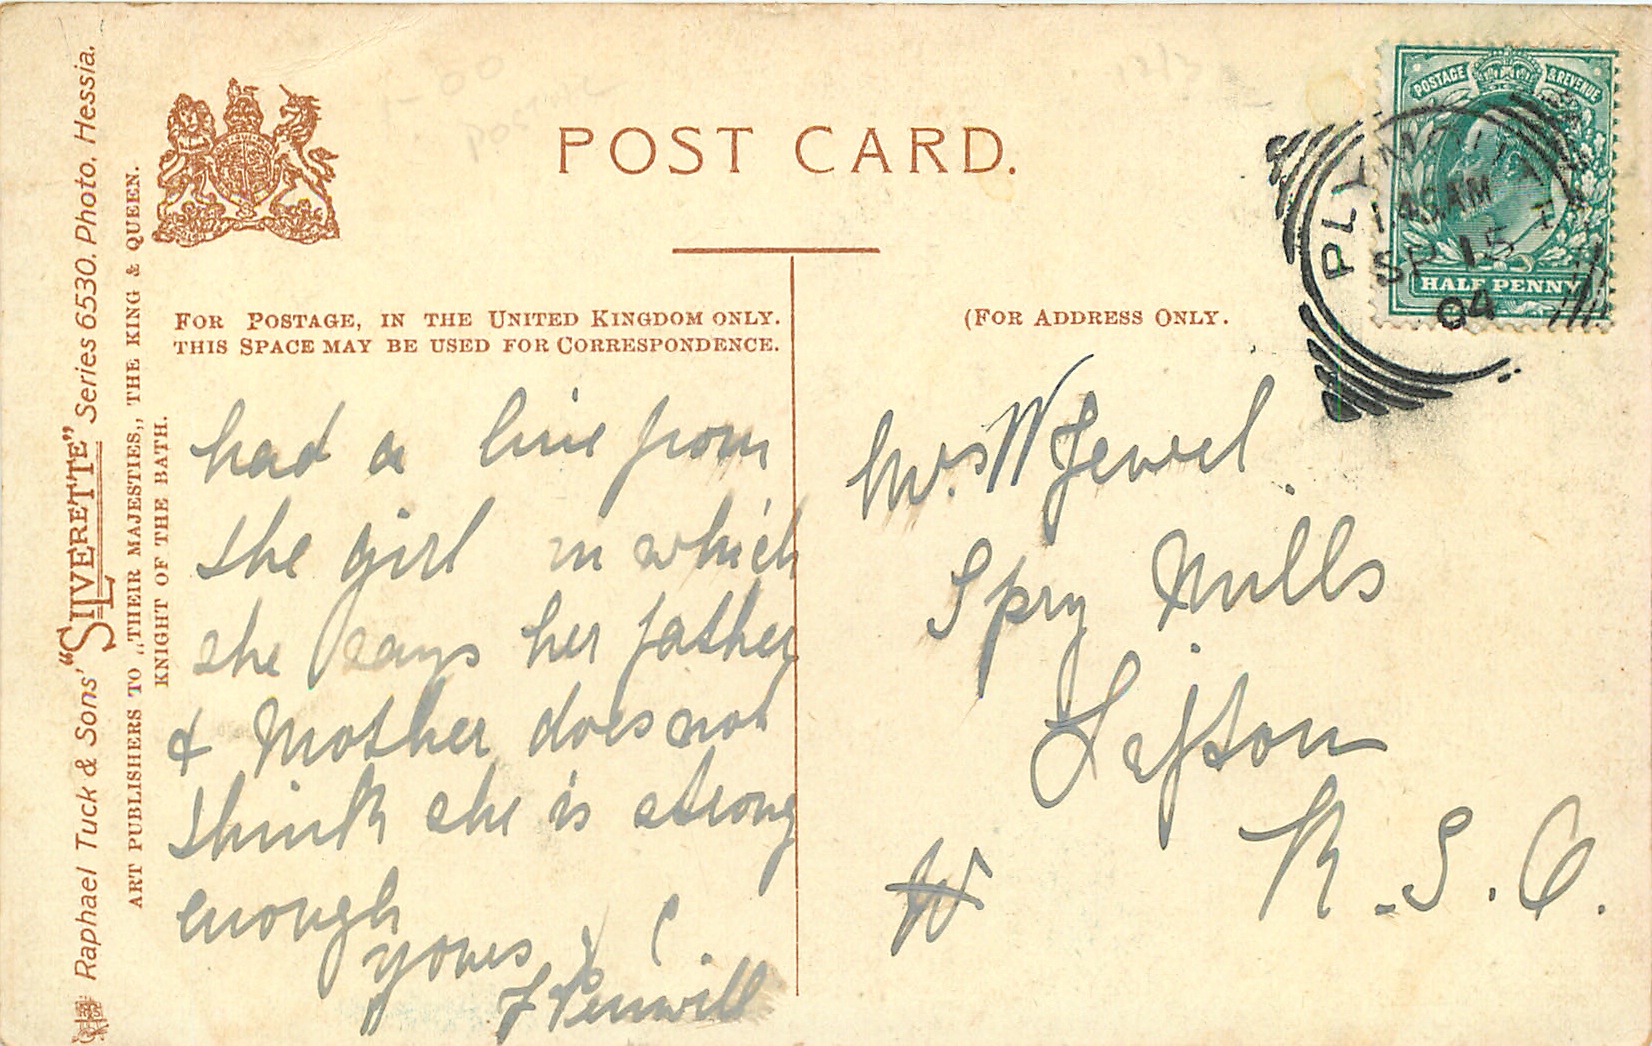 Raphael Tuck & Sons' "SILVERETTE" Series 6530. Photo, Hessia.
ART PUBLISHERS TO „THEIR MAJESTIES„ THE KING & QUEEN.
KNIGHT OF THE BATH.
POST CARD.
FOR POSTAGE, IN THE UNITED KINGDOM ONLY.
THIS SPACE MAY BE USED FOR CORRESPONDENCE.
(FOR ADDRESS ONLY.
POSTAGE & REVENUE
HALF PENNY
PLYMOUTH
SP 15
04
had a line from
the girl in which
she says her father
& Mother does not
think she is strong
enough
yours
J Penwill
Mrs W Jewel
Spry Mills
Lifton
R.S.O.